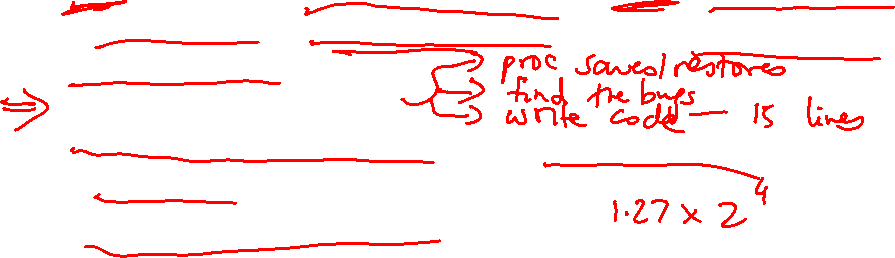 proc saves/restores
find the bugs
write code — 15 lines
1.27 x 2^4